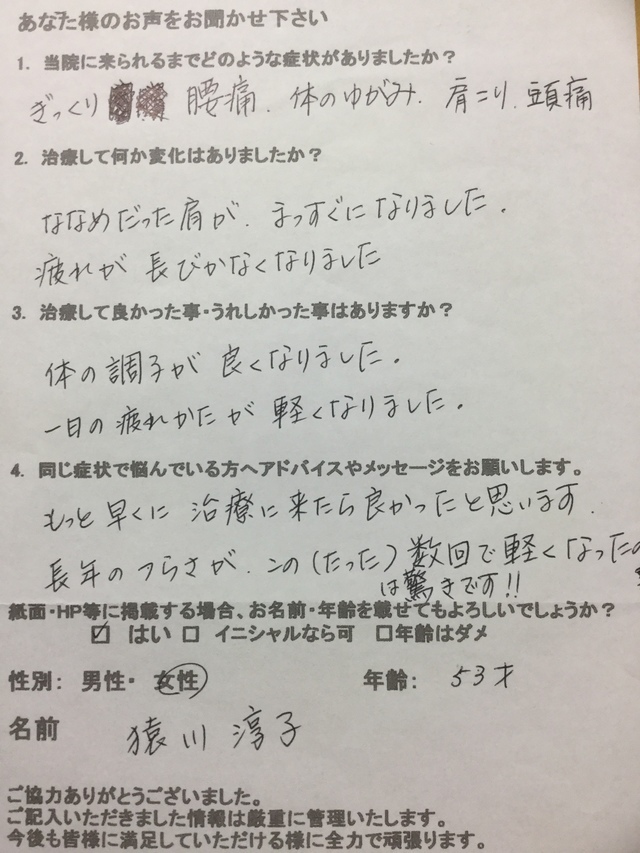 あなた様のお声をお聞かせ下さい
1. 当院に来られるまでどのような症状がありましたか？
ぎっくり 腰痛. 体のゆがみ. 肩こり. 頭痛
2. 治療して何か変化はありましたか？
ななめだった肩が. まっすぐになりました。
疲れが 長びかなくなりました
3. 治療して良かった事・うれしかった事はありますか？
体の調子が 良くなりました。
一日の疲れかたが 軽くなりました。
4. 同じ症状で悩んでいる方へアドバイスやメッセージをお願いします。
もっと早くに 治療に来たら良かったと思います.
長年のつらさが. この(たった)数回で軽くなったの
は驚きです!!
紙面・HP等に掲載する場合、お名前・年齢を載せてもよろしいでしょうか？
☑ はい □ イニシャルなら可 □年齢はダメ
性別： 男性・ 女性 年齢： 53才
名前 猿川 淳子
ご協力ありがとうございました。
ご記入いただきました情報は厳重に管理いたします。
今後も皆様に満足していただける様に全力で頑張ります。